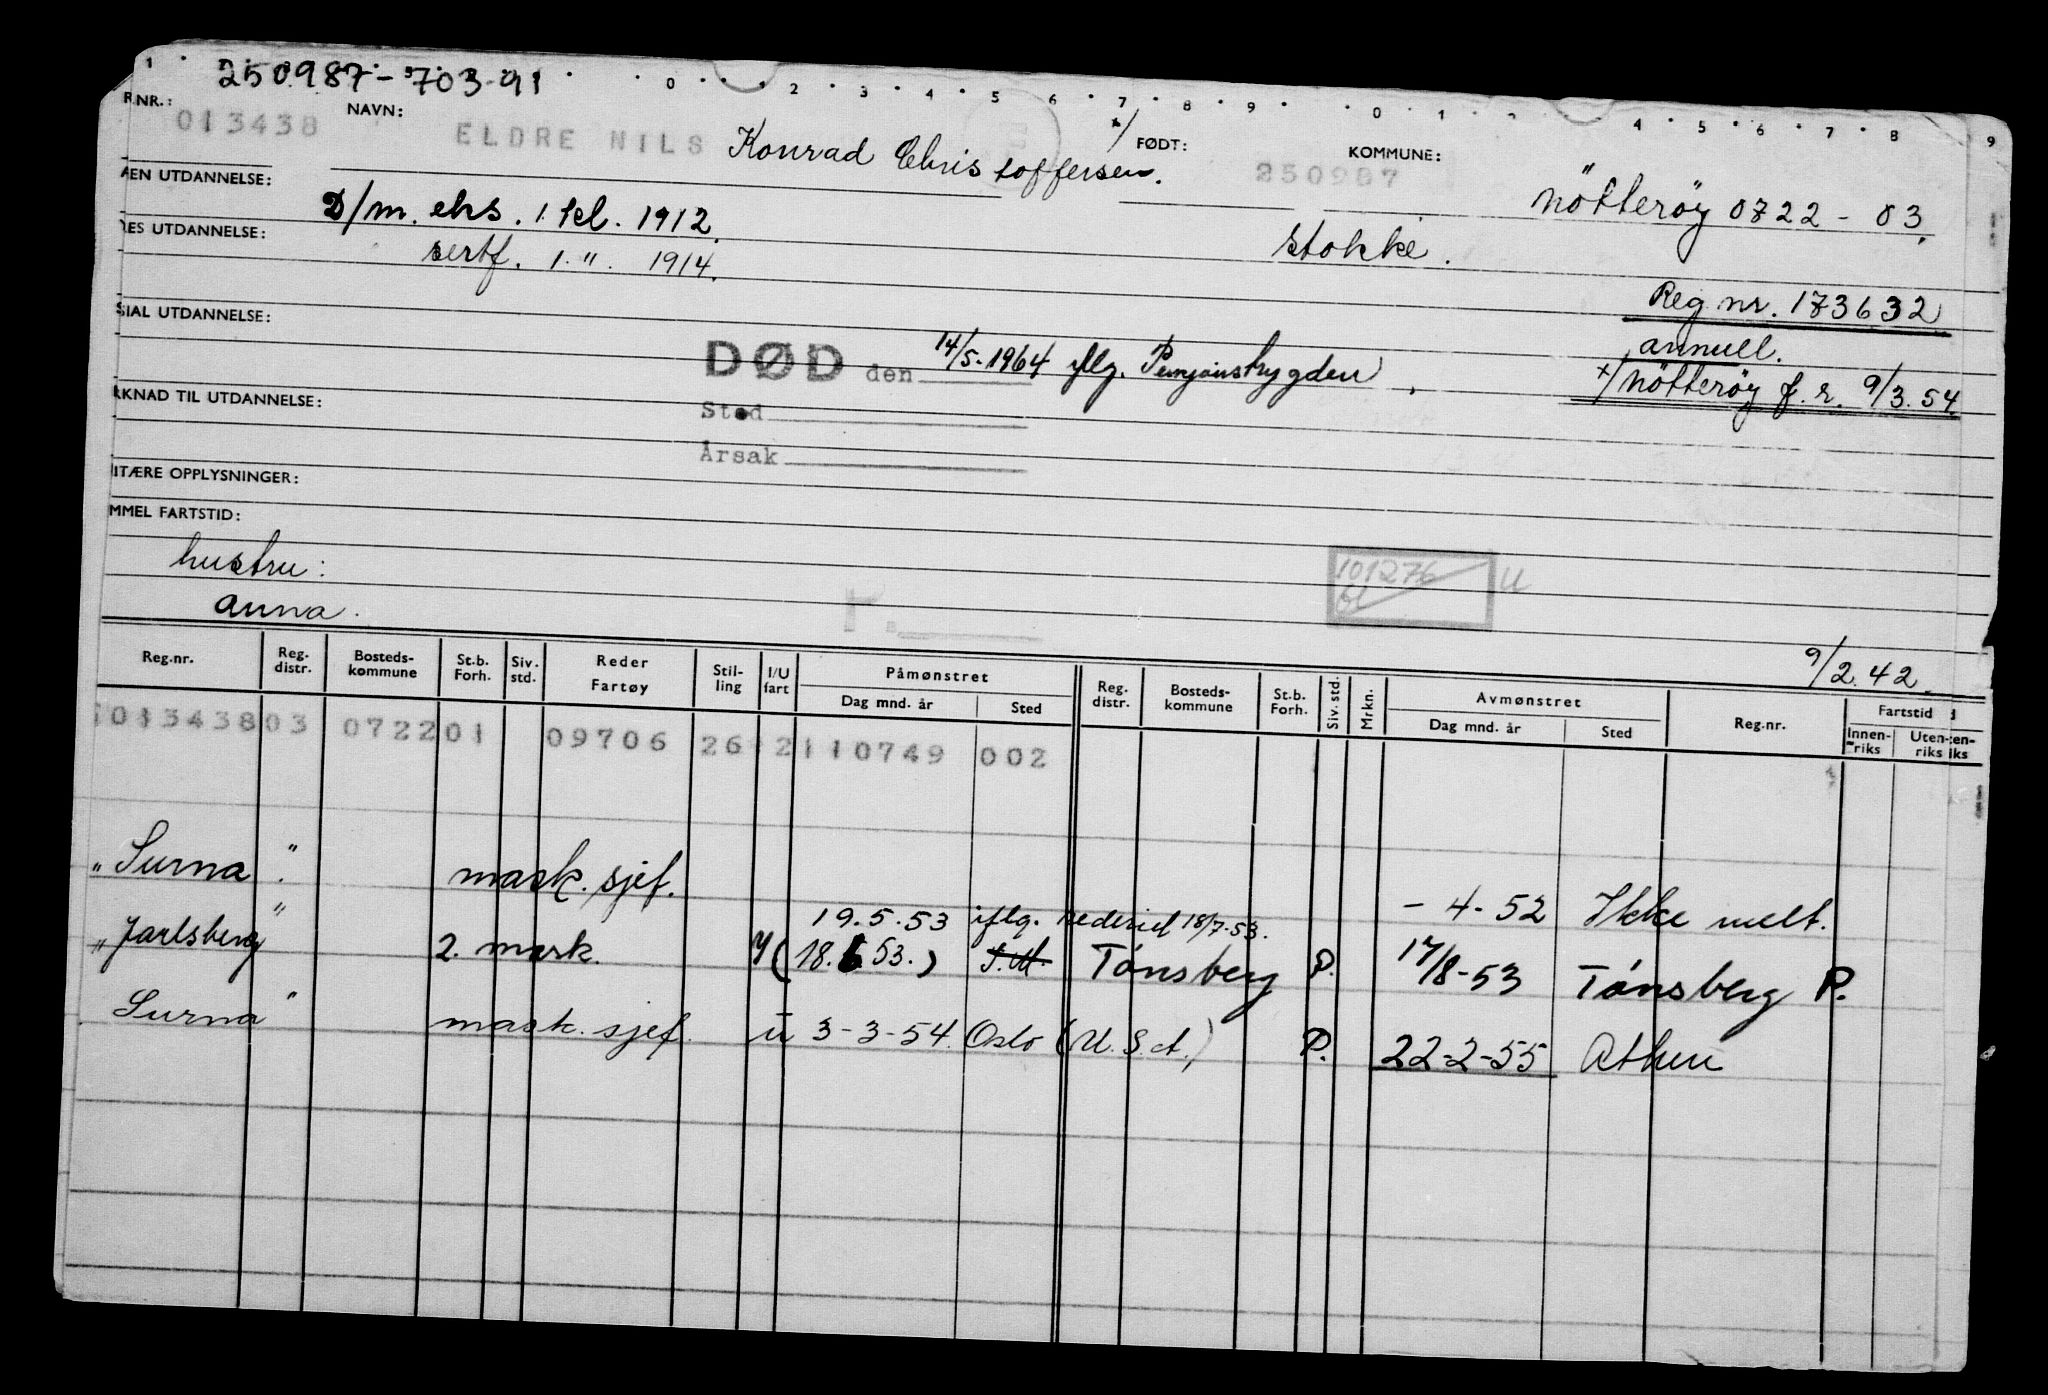 250987-703-91
1 0 2 3 4 5 6 7 8 9 0 1 4 5 6 7 8 9
R.NR.: 013438 NAVN: ELDRE NILS Konrad Christoffersen. x/ FØDT: 250987 KOMMUNE: Nötteröy 0722 - 03.
EN UTDANNELSE: D/m. eks. 1. kl. 1912. Stokke.
ES UTDANNELSE: sertf. 1. " . 1914.
Reg nr. 173632
annull.
SIAL UTDANNELSE:
DØD den 14/5-1964 iflg. Pensjonstrygden.
x/ Nötteröy f. r. 9/3.54
RKNAD TIL UTDANNELSE:
Sted
Årsak
ITÆRE OPPLYSNINGER:
MMEL FARTSTID:
hustru:
Anna.
101276 U
9/2.42.
Reg.nr. Reg. distr. Bosteds-kommune St.b. Forh. Siv. std. Reder Fartøy Stil-ling I/U fart Påmønstret Dag mnd. år Sted Reg. distr. Bosteds-kommune St.b. Forh. Siv. std. Mrkn. Avmønstret Dag mnd. år Sted Reg.nr. Fartstid Innen-riks Uten-riks
013438 03 0722 01 09706 26 2 110749 002
"Surna". mask. sjef. - 4 - 52 Ikke melt.
19.5.53 iflg. rederiet 18/7-53.
"Jarlsberg" 2. mask. (18.6 53.) Tönsberg P. 17/8-53 Tönsberg P.
Surna" mask. sjef. u 3-3-54. Oslo (U.S.A.) P. 22-2-55 Athen